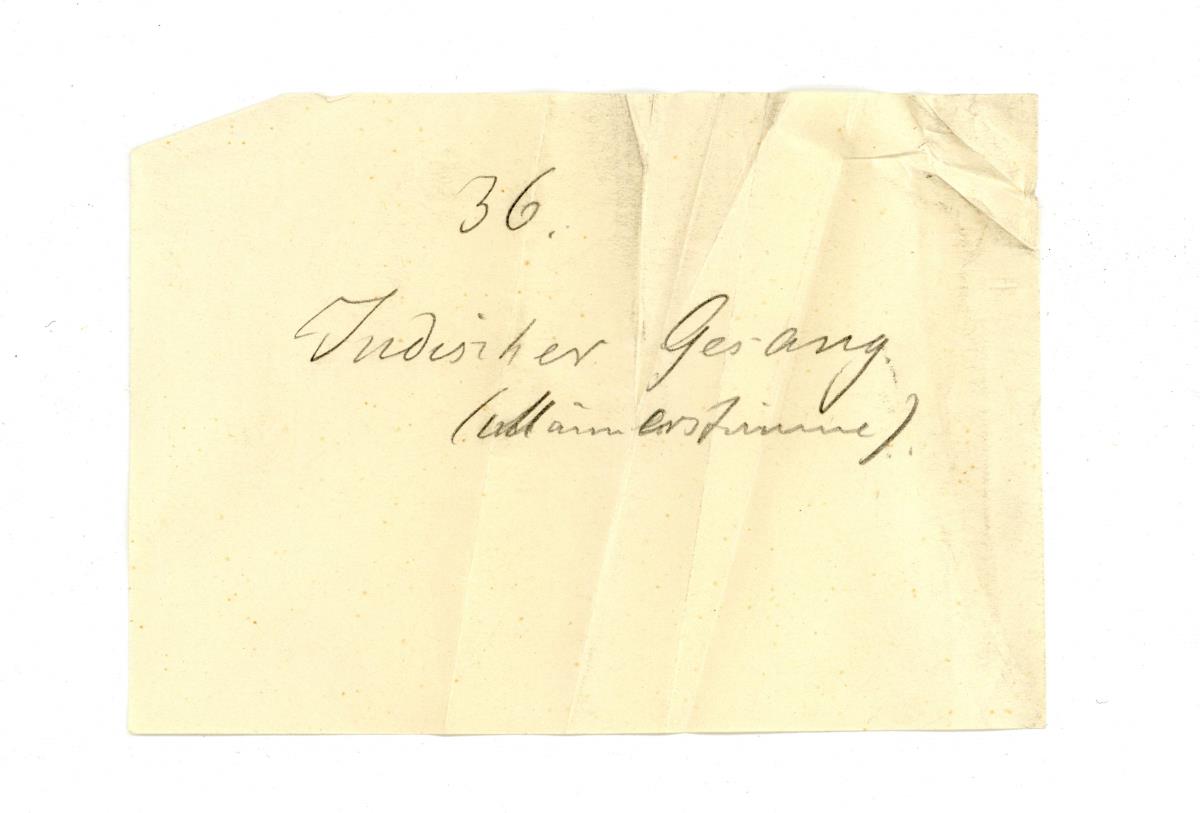 36.
Indischer Gesang
(Männerstimme).